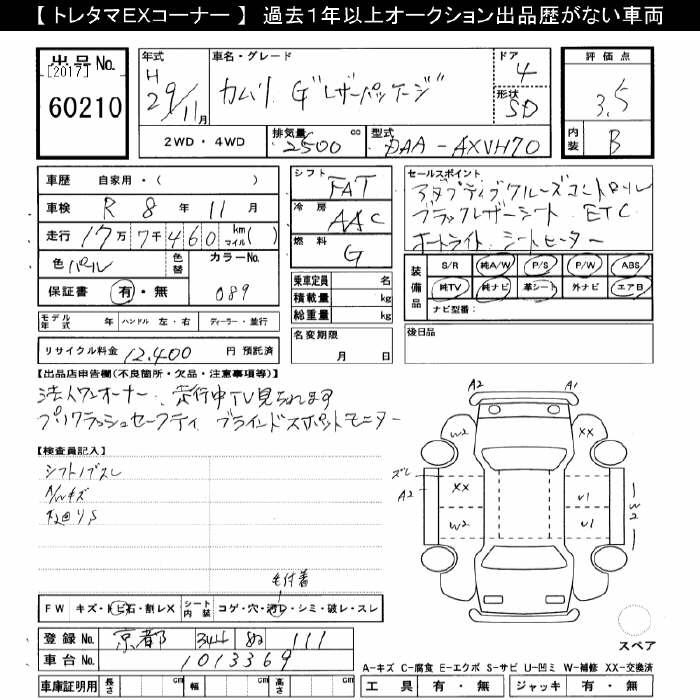 【 トレタマEXコーナー 】 過去1年以上オークション出品歴がない車両
出品No. [2017] 60210
年式 H 29/11月
車名・グレード カムリ G"レザーパッケージ"
ドア 4
形状 SD
評価点 3.5
内装 B
2WD・4WD
排気量 2500 cc
型式 DAA-AXVH70
車歴 自家用・( )
車検 R 8年 11月
走行 17万7千460 km マイル( )
色 パール 色替 カラーNo. 089
保証書 有・無
モデル年式 年 ハンドル 左・右 ディーラー・並行
リサイクル料金 12,400 円 預託済
シフト FAT
冷房 AAC
燃料 G
乗車定員 名
積載量 kg
総重量 kg
名変期限 月 日
セールスポイント
アダプティブクルーズコントロール
ブラックレザーシート ETC
オートライト シートヒーター
装備品 S/R 純A/W P/S P/W ABS
純TV 純ナビ 革シート 外ナビ エアB
ナビ型番:
後日品
【出品店申告欄(不良箇所・欠品・注意事項等)】
法人ワンオーナー 走行中TV見られます
プリクラッシュセーフティ ブラインドスポットモニター
【検査員記入】
シフトノブスレ
A/Wキズ
毛付着
FW キズ・トビ石・割レX シート内装 コゲ・穴・汚レ・シミ・破レ・スレ
A2 A1
W2 XX
ズレ
A2 XX U1 W2
W2 U1
スペア
登録No. 京都 344 ぬ 111
車台No. 1013369
A-キズ C-腐食 E-エクボ S-サビ U-凹ミ W-補修 XX-交換済
車庫証明用 長さ cm 幅 cm 高さ cm
工具 有・無 ジャッキ 有・無